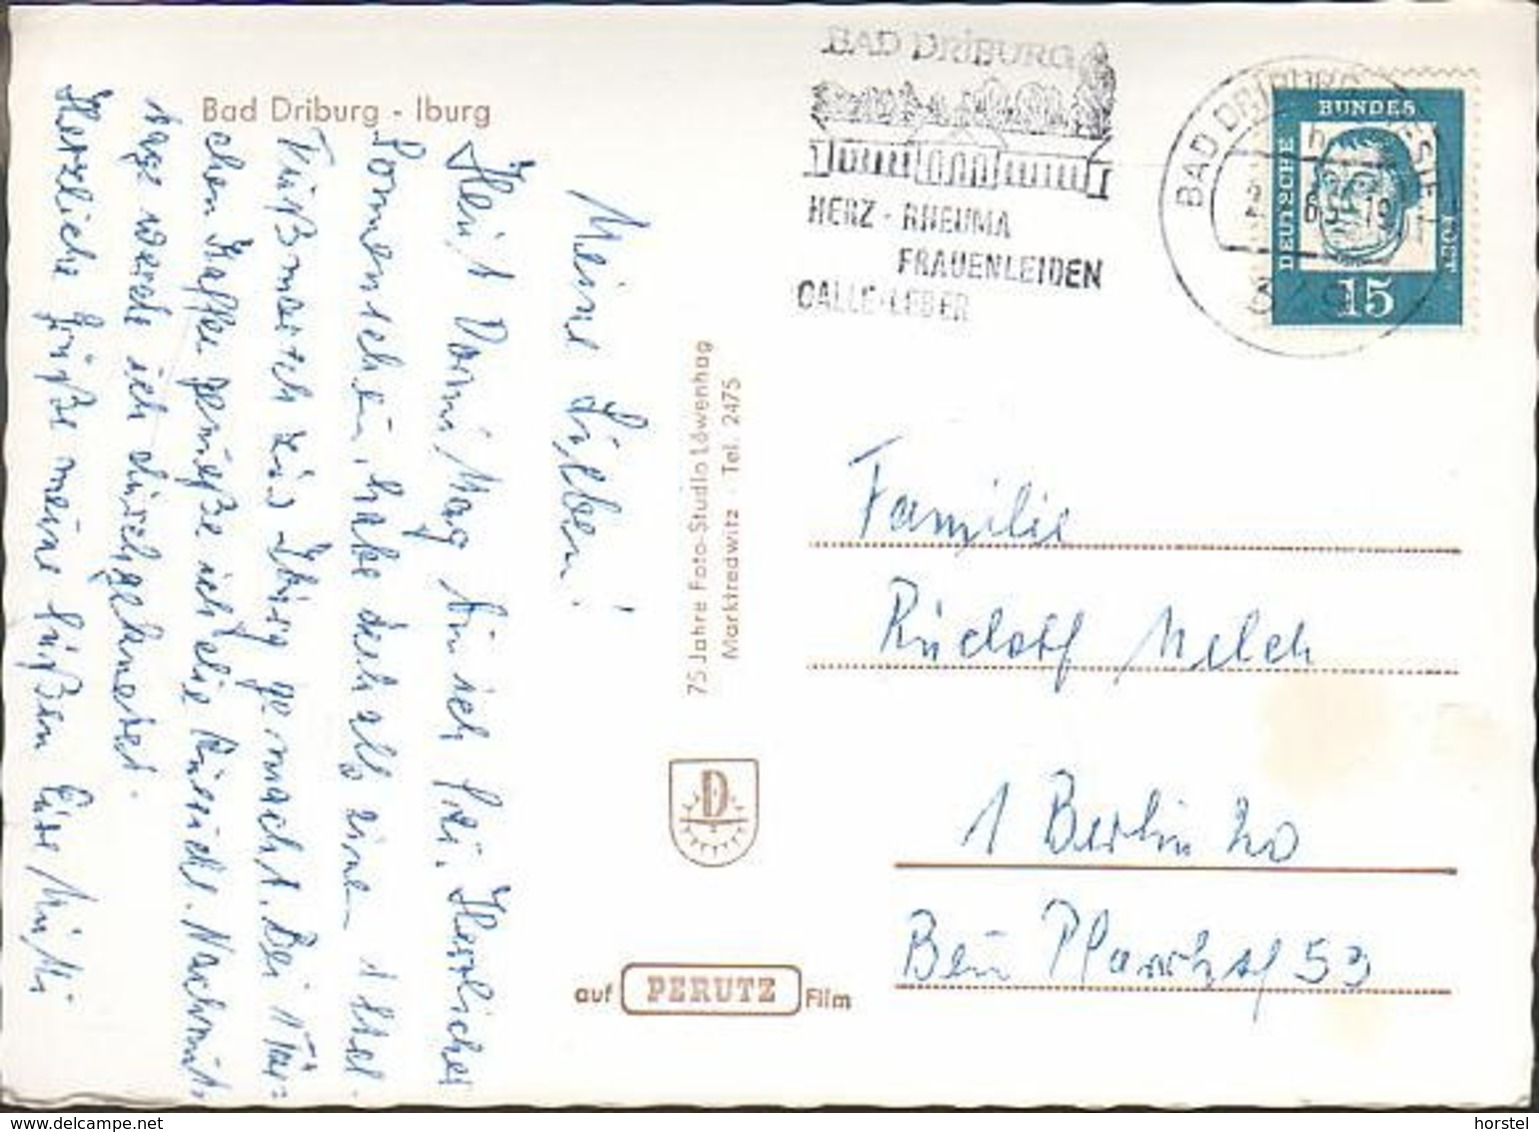 Bad Driburg - Iburg
Meine Lieben!
Heut Vormittag bin ich frei. Herrlicher
Sonnenschein, habe deshalb einen 1 Std.
Fußmarsch zur Iburg gemacht. Bei 1 Täs-
chen Kaffee genieße ich die Fernsicht. Nachmit-
tags werde ich durchgeknetet.
Herzliche Grüße meine Süßen Eure Mutti
75 Jahre Foto-Studio Löwenhag
Marktredwitz · Tel. 2475
D
auf PERUTZ Film
BAD DRIBURG
HERZ - RHEUMA
FRAUENLEIDEN
GALLE - LEBER
BAD DRIBURG
DEUTSCHE
BUNDES
POST
15
Familie
Rudolf Melch
1 Berlin 20
Beim Pfarrhof 53
delcampe.net
horstel